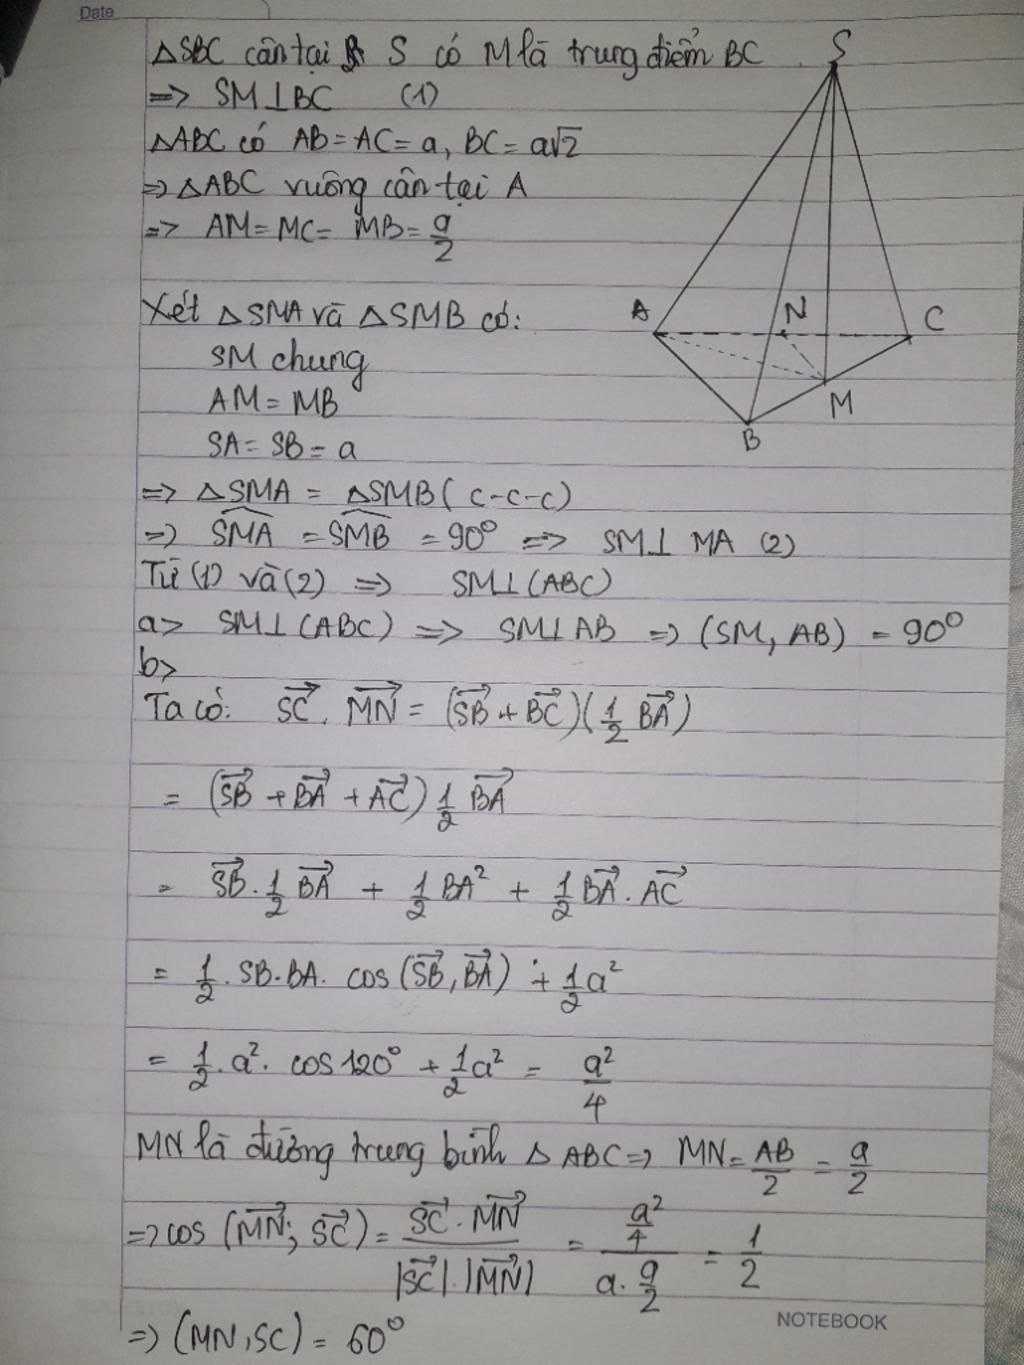 Date
△SBC cân tại S có M là trung điểm BC
=> SM⊥BC (1)
△ABC có AB = AC = a, BC = a√2
=> △ABC vuông cân tại A
=> AM = MC = MB = a/2
Xét △SMA và △SMB có:
SM chung
AM = MB
SA = SB = a
=> △SMA = △SMB (c-c-c)
=> \widehat{SMA} = \widehat{SMB} = 90° => SM⊥ MA (2)
Từ (1) và (2) => SM⊥(ABC)
a> SM⊥(ABC) => SM⊥AB => (SM, AB) = 90°
b>
Ta có: \vec{SC}. \vec{MN} = (\vec{SB} + \vec{BC})(1/2 \vec{BA})
= (\vec{SB} + \vec{BA} + \vec{AC}) 1/2 \vec{BA}
= \vec{SB}. 1/2 \vec{BA} + 1/2 BA² + 1/2 \vec{BA}. \vec{AC}
= 1/2. SB. BA. cos (\vec{SB}, \vec{BA}) + 1/2 a²
= 1/2. a². cos 120° + 1/2 a² = a²/4
MN là đường trung bình △ ABC => MN = AB/2 = a/2
=> cos (\vec{MN}; \vec{SC}) = \vec{SC}. \vec{MN} / |\vec{SC}|. |\vec{MN}| = a²/4 / a. a/2 = 1/2
=> (MN, SC) = 60°
S
A
N
C
M
B
NOTEBOOK